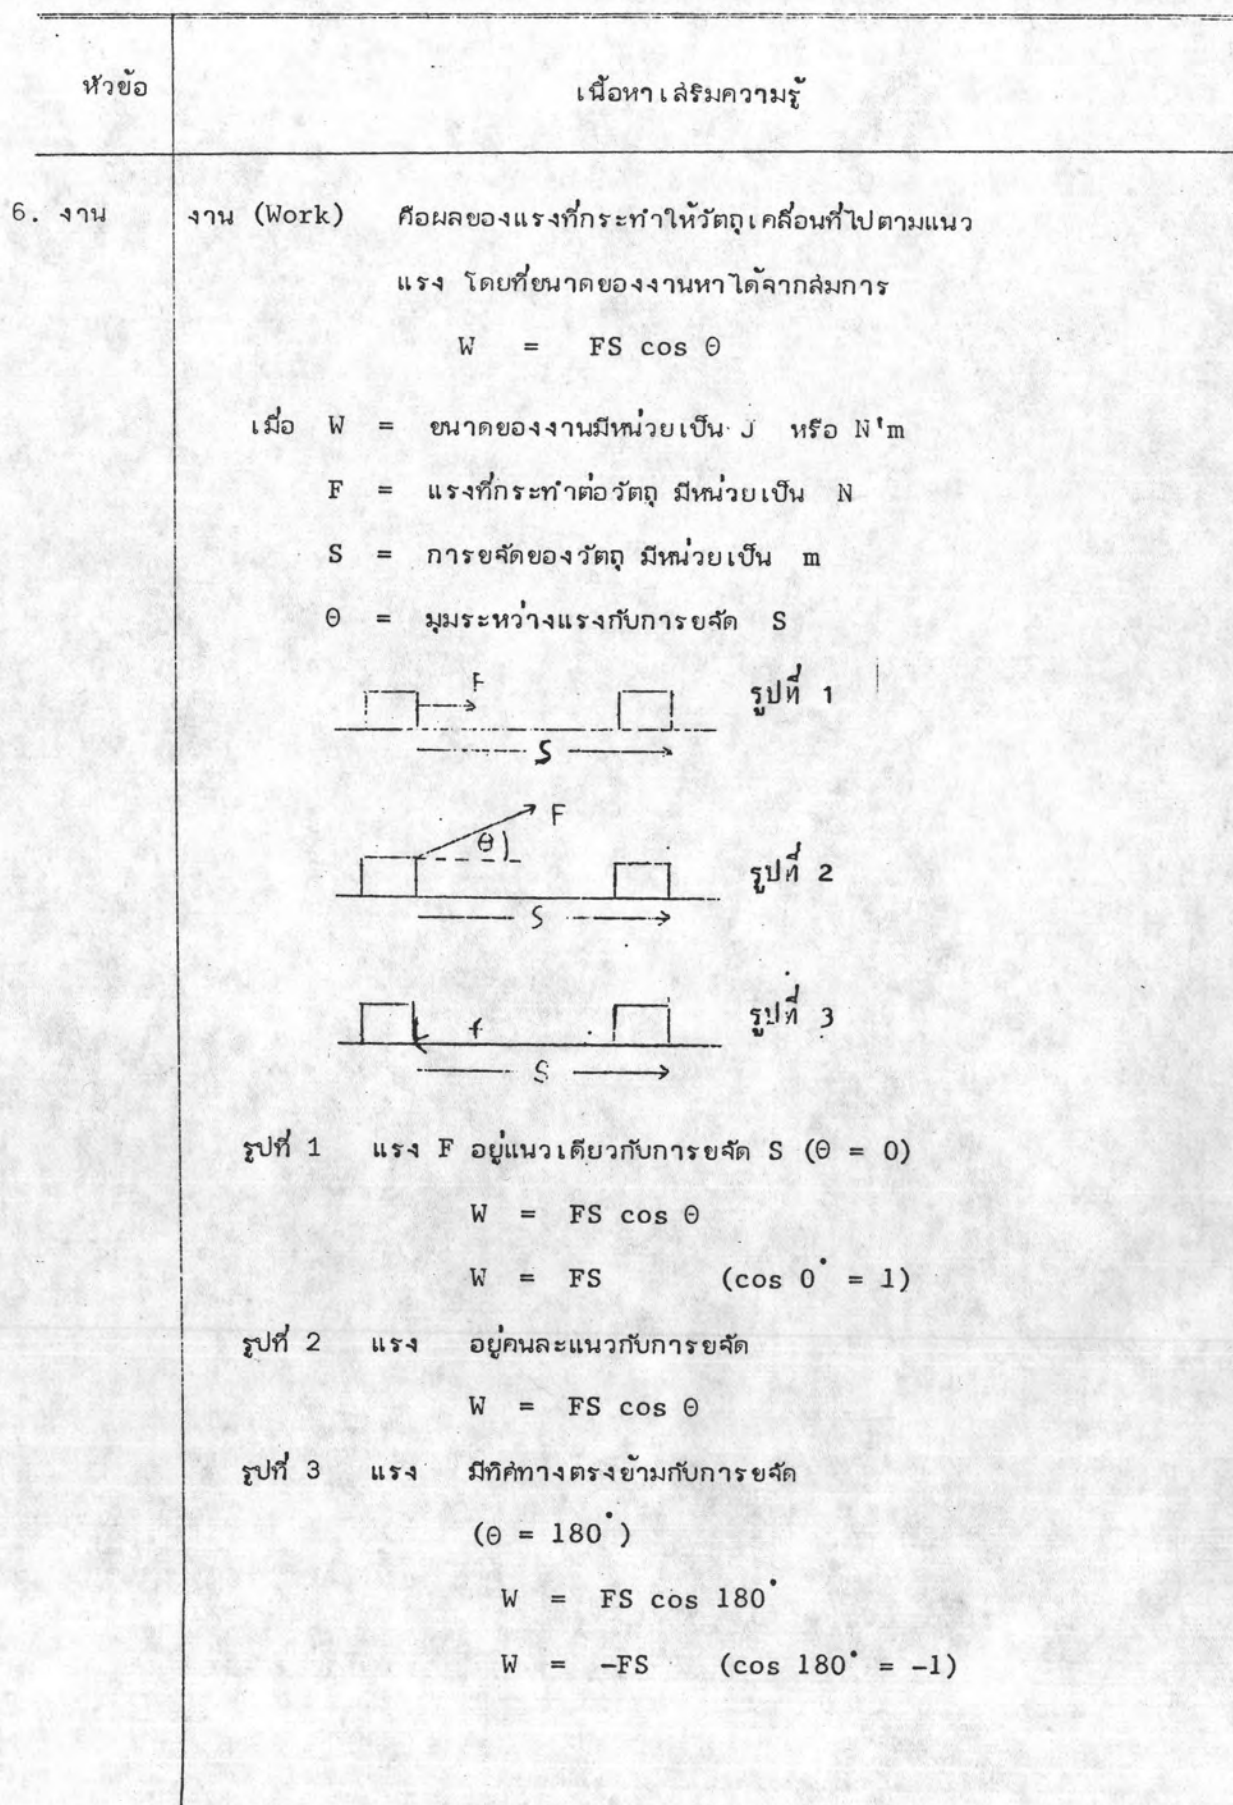 หัวข้อ เนื้อหาเสริมความรู้
6. งาน งาน (Work) คือผลของแรงที่กระทำให้วัตถุเคลื่อนที่ไปตามแนว
แรง โดยที่ขนาดของงานหาได้จากสมการ
W = FS cos θ
เมื่อ W = ขนาดของงานมีหน่วยเป็น J หรือ N'm
F = แรงที่กระทำต่อวัตถุ มีหน่วยเป็น N
S = การขจัดของวัตถุ มีหน่วยเป็น m
θ = มุมระหว่างแรงกับการขจัด S
F
รูปที่ 1
S
F
θ
รูปที่ 2
S
รูปที่ 3
f
S
รูปที่ 1 แรง F อยู่แนวเดียวกับการขจัด S (θ = 0)
W = FS cos θ
W = FS (cos 0° = 1)
รูปที่ 2 แรง อยู่คนละแนวกับการขจัด
W = FS cos θ
รูปที่ 3 แรง มีทิศทางตรงข้ามกับการขจัด
(θ = 180°)
W = FS cos 180°
W = -FS (cos 180° = -1)